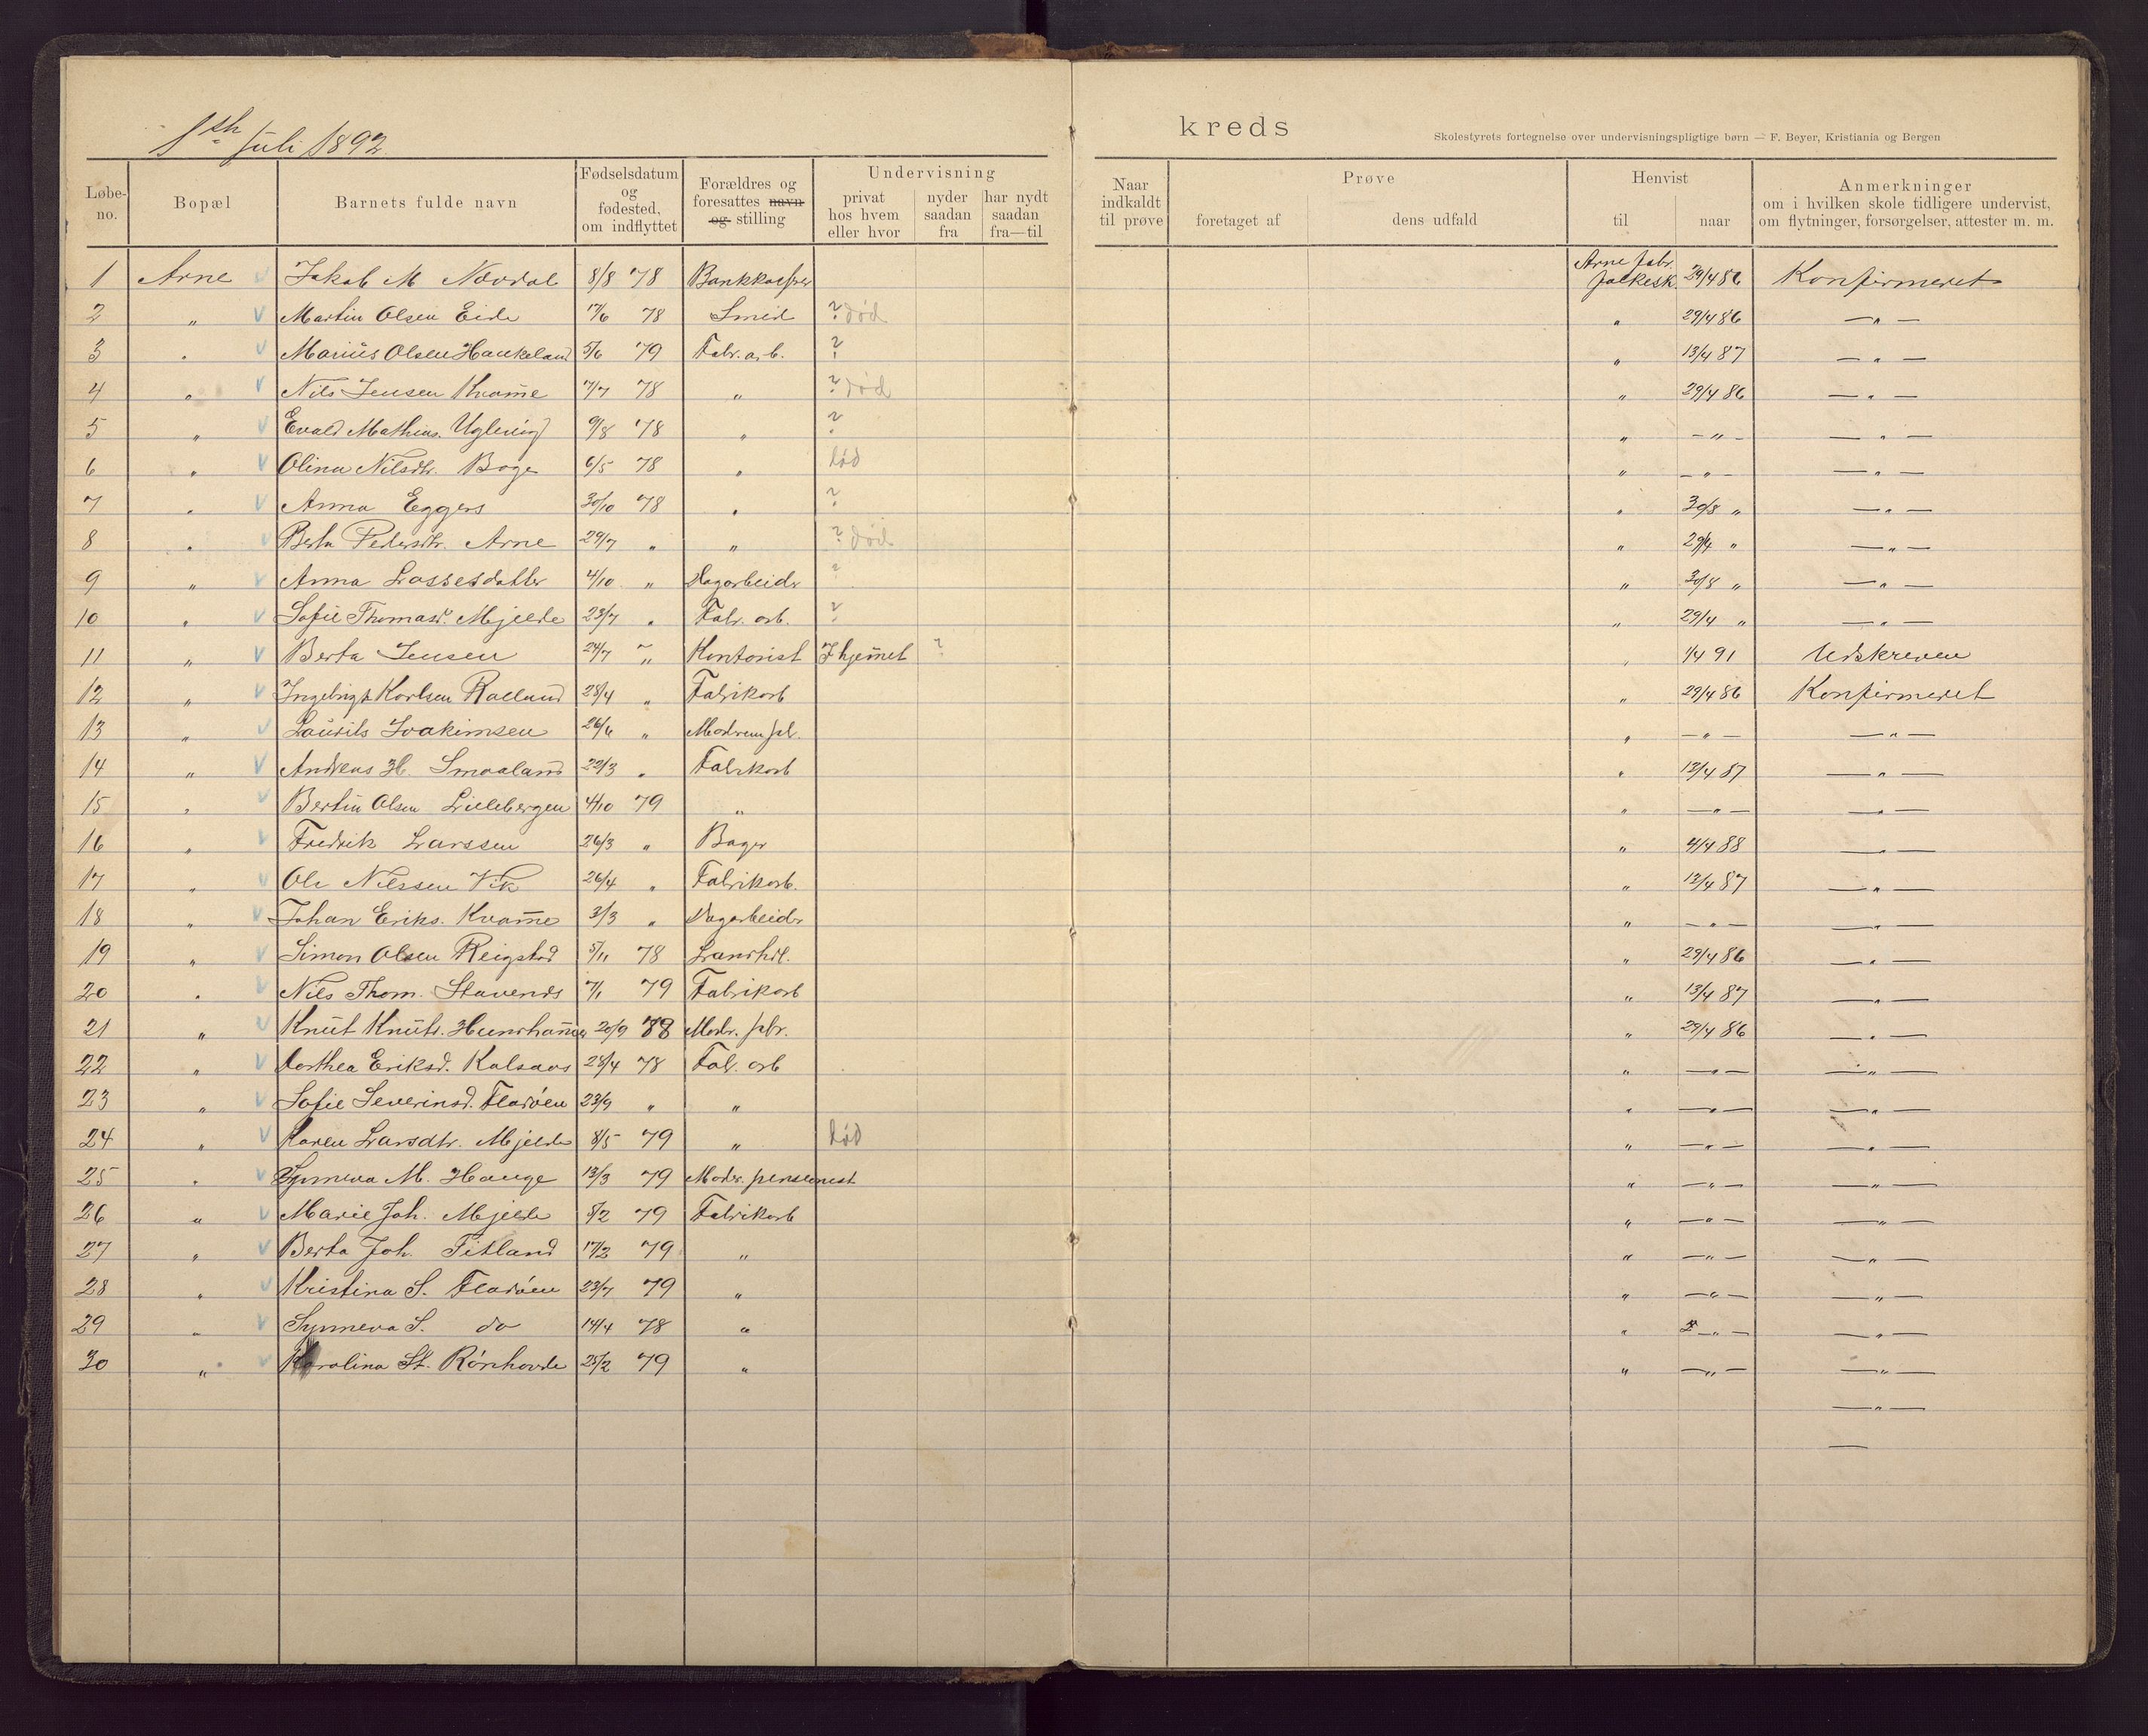 1ste Juli 1892.
kreds
Skolestyrets fortegnelse over undervisningspligtige børn — F. Beyer, Kristiania og Bergen
Løbe-no. Bopæl Barnets fulde navn Fødselsdatum og fødested, om indflyttet Forældres og foresattes navn og stilling Undervisning privat hos hvem eller hvor nyder saadan fra har nydt saadan fra—til Naar indkaldt til prøve Prøve foretaget af dens udfald Henvist til naar Anmerkninger om i hvilken skole tidligere undervist, om flytninger, forsørgelser, attester m. m.
1 Arne Jakob M Nævdal 8/8 78 Bankkasser Arne Fabr. folkesk. 29/4 86 Konfirmeret
2 " Martin Olsen Eide 17/6 78 Smed ? død " 29/4 86 — " —
3 " Marius Olsen Haukeland 5/6 79 Fabr. arb. ? " 13/4 87 — " —
4 " Nils Jensen Kvamme 7/7 78 " ? død " 29/4 86 — " —
5 " Evald Mathias. 9/8 78 " ? " — " — — " —
6 " Olina Nilsdtr. Boge 6/5 78 " død " — " — — " —
7 " Anna Eggers 30/10 78 " ? " 30/8 " — " —
8 " Berta Pedersdtr. Arne 29/7 " " ? død " 29/4 " — " —
9 " Anna Lassesdatter 4/10 " Dagarbeider ? " 30/8 " — " —
10 " Sofie Thomasd. Mjelde 23/7 " Fabr. arb. ? " 29/4 " — " —
11 " Berta Jensen 24/7 " Kontorist I hjemmet ? " 1/4 91 Udskreven
12 " Ingebrigt Karlsen 28/4 " Fabrikarb " 29/4 86 Konfirmeret
13 " Laurits Joakimsen 26/6 " " — " — — " —
14 " Andreas H. Smaaland 22/3 " Fabrikarb " 13/4 87 — " —
15 " Bertin Olsen Lillebergen 4/10 79 " " — " — — " —
16 " Fredrik Larssen 26/3 " Bager " 4/4 88 — " —
17 " Ole Nilssen Vik 26/4 " Fabrikarb. " 13/4 87 — " —
18 " Johan Eriks. Kvamme 3/3 " Dagarbeider " — " — — " —
19 " Simon Olsen Reigstad 5/11 78 Landhdl. " 29/4 86 — " —
20 " Nils Thom. 7/1 79 Fabrikarb " 13/4 87 — " —
21 " Knut Knuts. Hundhammer 20/9 78 Modr. fabr. " 29/4 86 — " —
22 " Dorthea Eriksd. Kalsaas 28/4 78 Fab. arb " — " — — " —
23 " Sofie Severinsd. Fladøen 23/9 " " " — " — — " —
24 " Karen Larsdtr. Mjelde 8/5 79 " død " — " — — " —
25 " Synneva M. Hauge 13/3 79 Moder. pensionist " — " — — " —
26 " Marie Joh. Mjelde 8/2 79 Fabrikarb " — " — — " —
27 " Berta Joh. Titland 17/2 79 " " — " — — " —
28 " Kristina S. Fladøen 23/7 79 " " — " — — " —
29 " Synneva S. do 14/4 78 " " — " — — " —
30 " Karolina St. Rønhovde 25/2 79 " " — " — — " —
— " —
—